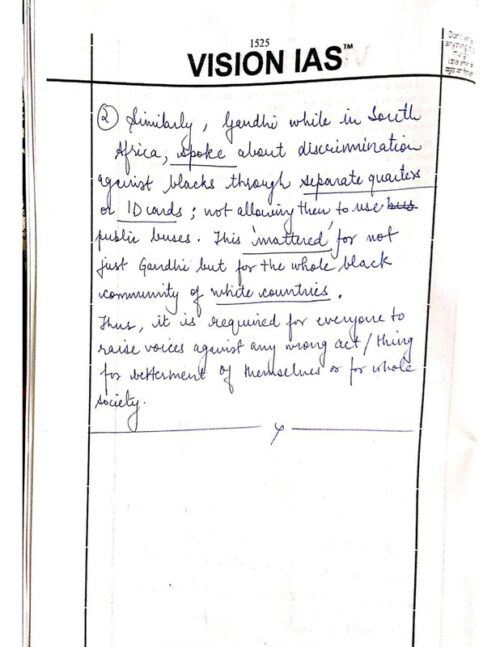 1525
VISION IAS™
Don't write
anything
② Similarly, Gandhi while in South
Africa, spoke about discrimination
against blacks through separate quarters
or ID cards ; not allowing them to use bus
public buses. This 'mattered' for not
just Gandhi but for the whole black
community of white countries.
Thus, it is required for everyone to
raise voices against any wrong act / thing
for betterment of themselves or for whole
society.